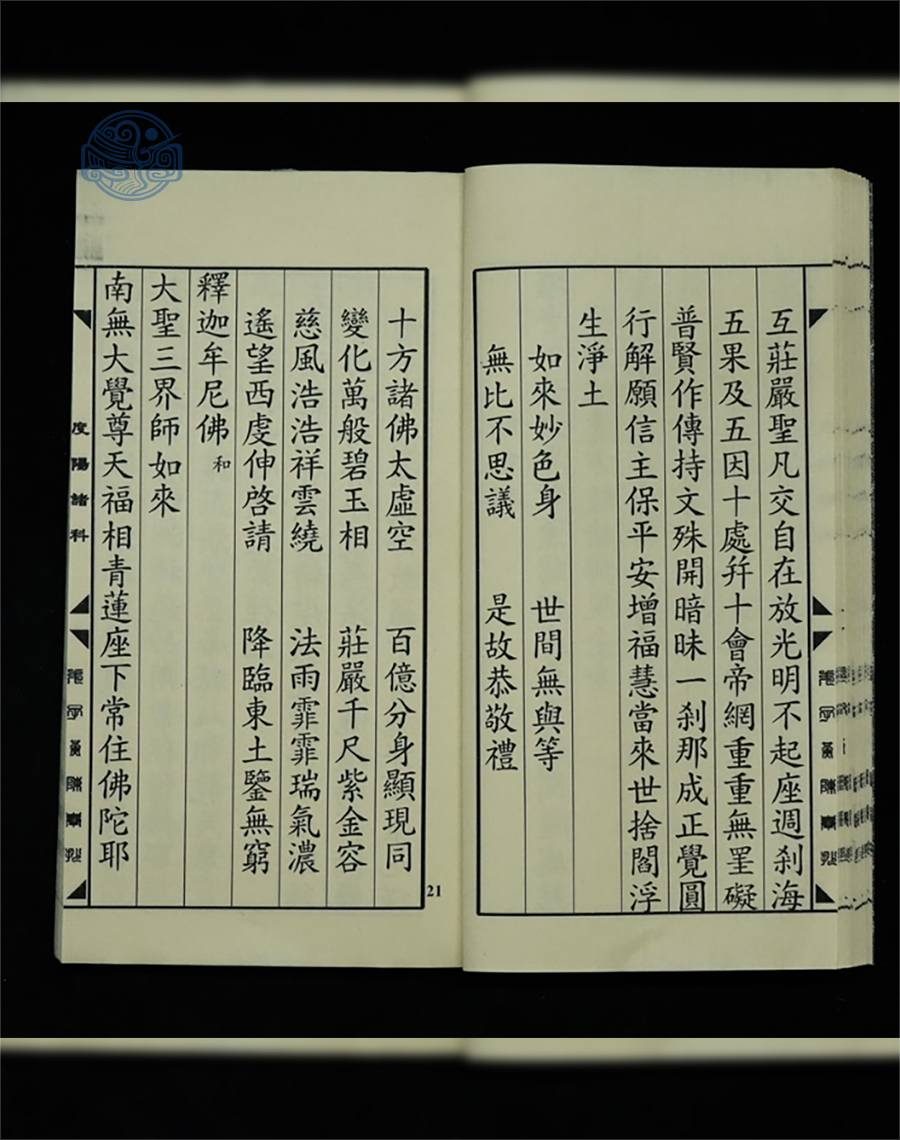 互莊嚴聖凡交自在放光明不起座週刹海
五果及五因十處并十會帝網重重無罣礙
普賢作傳持文殊開暗昧一刹那成正覺圓
行解願信主保平安增福慧當來世捨閻浮
生淨土
如來妙色身 世間無與等
無比不思議 是故恭敬禮
十方諸佛太虛空 百億分身顯現同
變化萬般碧玉相 莊嚴千尺紫金容
慈風浩浩祥雲繞 法雨霏霏瑞氣濃
遙望西虔伸啓請 降臨東土鑒無窮
釋迦牟尼佛 和
大聖三界師如來
南無大覺尊天福相青蓮座下常住佛陀耶
度陽諸科
21